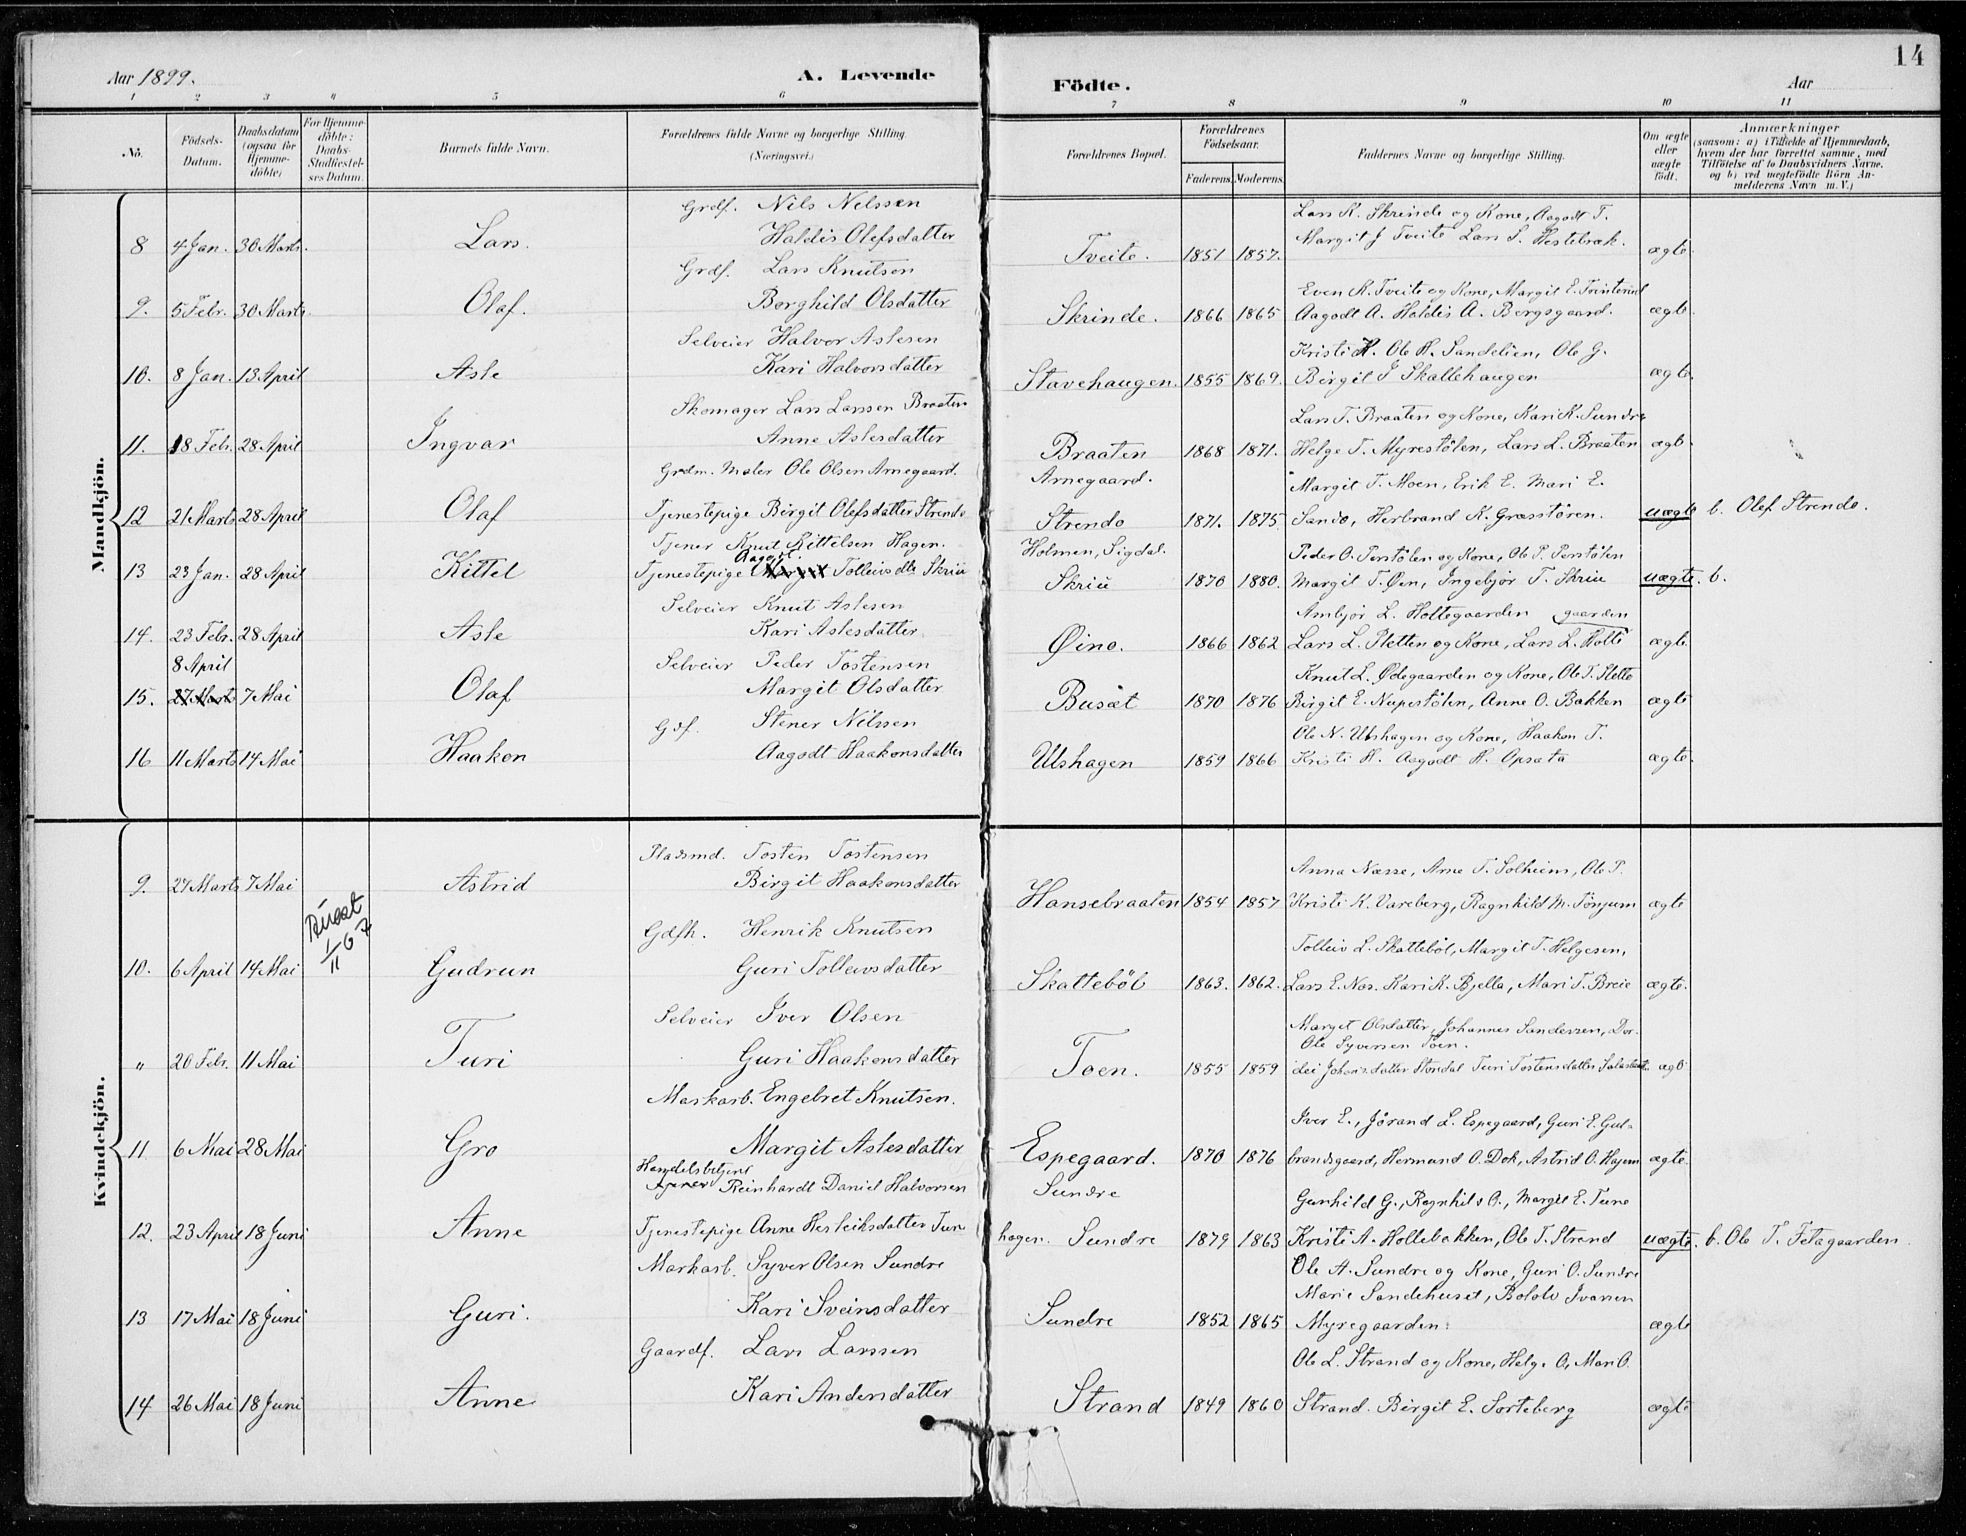 14
Aar 1899.
A. Levende
Födte.
Aar
1 2 3 4 5 6 7 8 9 10 11
No.
Födsels-Datum.
Daabsdatum (ogsaa for Hjemme-döbte)
For Hjemme-döbte: Daabs-Stadfæstel-ses Datum.
Barnets fulde Navn.
Forældrenes fulde Navne og borgerlige Stilling. (Næringsvei.)
Forældrenes Bopæl.
Forældrenes Födselsaar.
Faderens. Moderens.
Faddernes Navne og borgerlige Stilling.
Om ægte eller uægte födt.
Anmærkninger
(saasom: a) i Tilfælde af Hjemmedaab,
hvem der har forrettet samme, med
Tilföielse af to Daabsvidners Navne,
og b) ved uægtefödte Börn An-
melderens Navn m. V.)
Mandkjön.
Grdf. Nils Nilssen
Lars K. Skrinde og Kone, Aagodt T.
8 4 Jan. 30 Marts. Lars. Haldis Olefsdatter Tveite. 1851 1857. Margit J Tveite Lars S. Hestebræk. ægte.
Grdf. Lars Knutsen
Even K. Tveite og Kone, Margit E.
9. 5 Febr. 30 Marts. Olaf. Borghild Olsdatter Skrinde. 1866 1865 Aagodt A. Haldis A. Bergsgaard. ægte.
Selveier Halvor Aslesen
Kristi H. Ole H. Sandelien, Ole G.
10. 8 Jan. 13 April Asle Kari Halvorsdatter Stavehaugen. 1855 1869. Birgit S Skallehaugen ægte.
Skomager Lars Larssen Braaten
Lars T. Braaten og Kone, Kari K. Sundre
11. 18 Febr. 28 April Ingvar Anne Aslesdatter Braaten 1868 1871. Helge T. Myrestölen, Lars L. Braaten ægte.
Grdm. Maler Ole Olsen Arnegaard. Arnegaard.
Margit T. Moen, Erik E. Mari E.
12 21 Marts 28 April Olaf Tjenestepige Birgit Olefsdatter Strende Strende 1871. 1875 Sando, Herbrand K. Græsstören. uægte b. Olef Strende.
Tjener Knut Kittelsen Hagen. Holmen, Sigdal.
Peder O. Perstölen og Kone, Ole P. Perstölen
Aagot.
13 23 Jan. 28 April Kittel Tjenestepige Margit Tolleivsdtr Skriu Skriu 1870 1880. Margit T. Öen, Ingebjör T. Skriu uægte. b.
Selveier Knut Aslesen
Ambjör L. Holtegaarden gaarden
14. 23 Febr. 28 April Asle Kari Aslesdatter Øino. 1866 1862 Lars L. Sletten og Kone, Lars L. Holte ægte
8 April
Selveier Peder Tostensen
Knut L. Ødegaarden og Kone, Ole T. Slette
15. 27 Marts 7 Mai Olaf Margit Olsdatter Busæt 1870 1876 Birgit E. Nupestölen, Anne O. Bakken ægte
Gdf. Stener Nilssen
Ole N. Ulshagen og Kone, Haakon T.
16 11 Marts 14 Mai Haaken Aagodt Haakonsdatter Ulshagen 1859 1866 Kristi H. Aagodt H. Opsata ægte.
Kvindekjön.
Pladsmd. Tosten Tostensen
Anna Næsse, Arne T. Solheim, Ole P.
9. 27 Marts 7 Mai Astrid Birgit Haakonsdatter Hansebraaten 1854 1857 Kristi K. Vareberg, Ragnhild M. Tönjum ægte
1/11 67
Gdfh. Henrik Knutsen
Tolleiv L. Skatteböl, Margit T. Helgesen,
10. 6 April 14 Mai Gudrun Guri Tolleivsdatter Skatteböl 1863. 1862. Lars E. Nos. Kari K. Bjella, Mari T. Breie ægte.
Selveier Iver Olsen
Marget Olsdatter, Johannes Sandersen, Dor-
Ole Syversen Toen.
" 20 Febr. 11 Mai Turi Guri Haakonsdatter Toen. 1855 1859 dei Johansdatter Stondal Turi Tostensdatter ægte
Markarb. Engebret Knutsen.
Iver E., Jörand L. Espegaard, Guri E. Gul-
11 6 Mai 28 Mai Gro Margit Aslesdatter Espegaard. 1870 1876 brandsgaard, Hermund O. Dok, Astrid O. Hagen ægte.
Handelsbetjent
Tjener Reinhardt Daniel Halvorsen Sundre
Gunhild G., Ragnhild O., Margit E. Tuno
12. 23 April 18 Juni Anne Tjenestepige Anne Herleiksdatter Tun hagen. Sundre 1879 1863 Kristi A. Hollebakken, Ole T. Strand uægte. b. Ole T. Fetagaarden.
Markarb. Syver Olsen Sundre
Ole A. Sundre og Kone, Guri O. Sundre
Marie Sandehuset, Bolole Ivarsen
13 17 Mai 18 Juni Guri. Kari Sveinsdatter Sundre 1852 1865 Myregaarden. ægte
Gaardf. Lars Larssen
Ole L. Strand og Kone, Helge O, Mari O.
14 26 Mai 18 Juni Anne Kari Andersdatter Strand 1849 1860 Strand. Birgit E. Sorteberg ægte